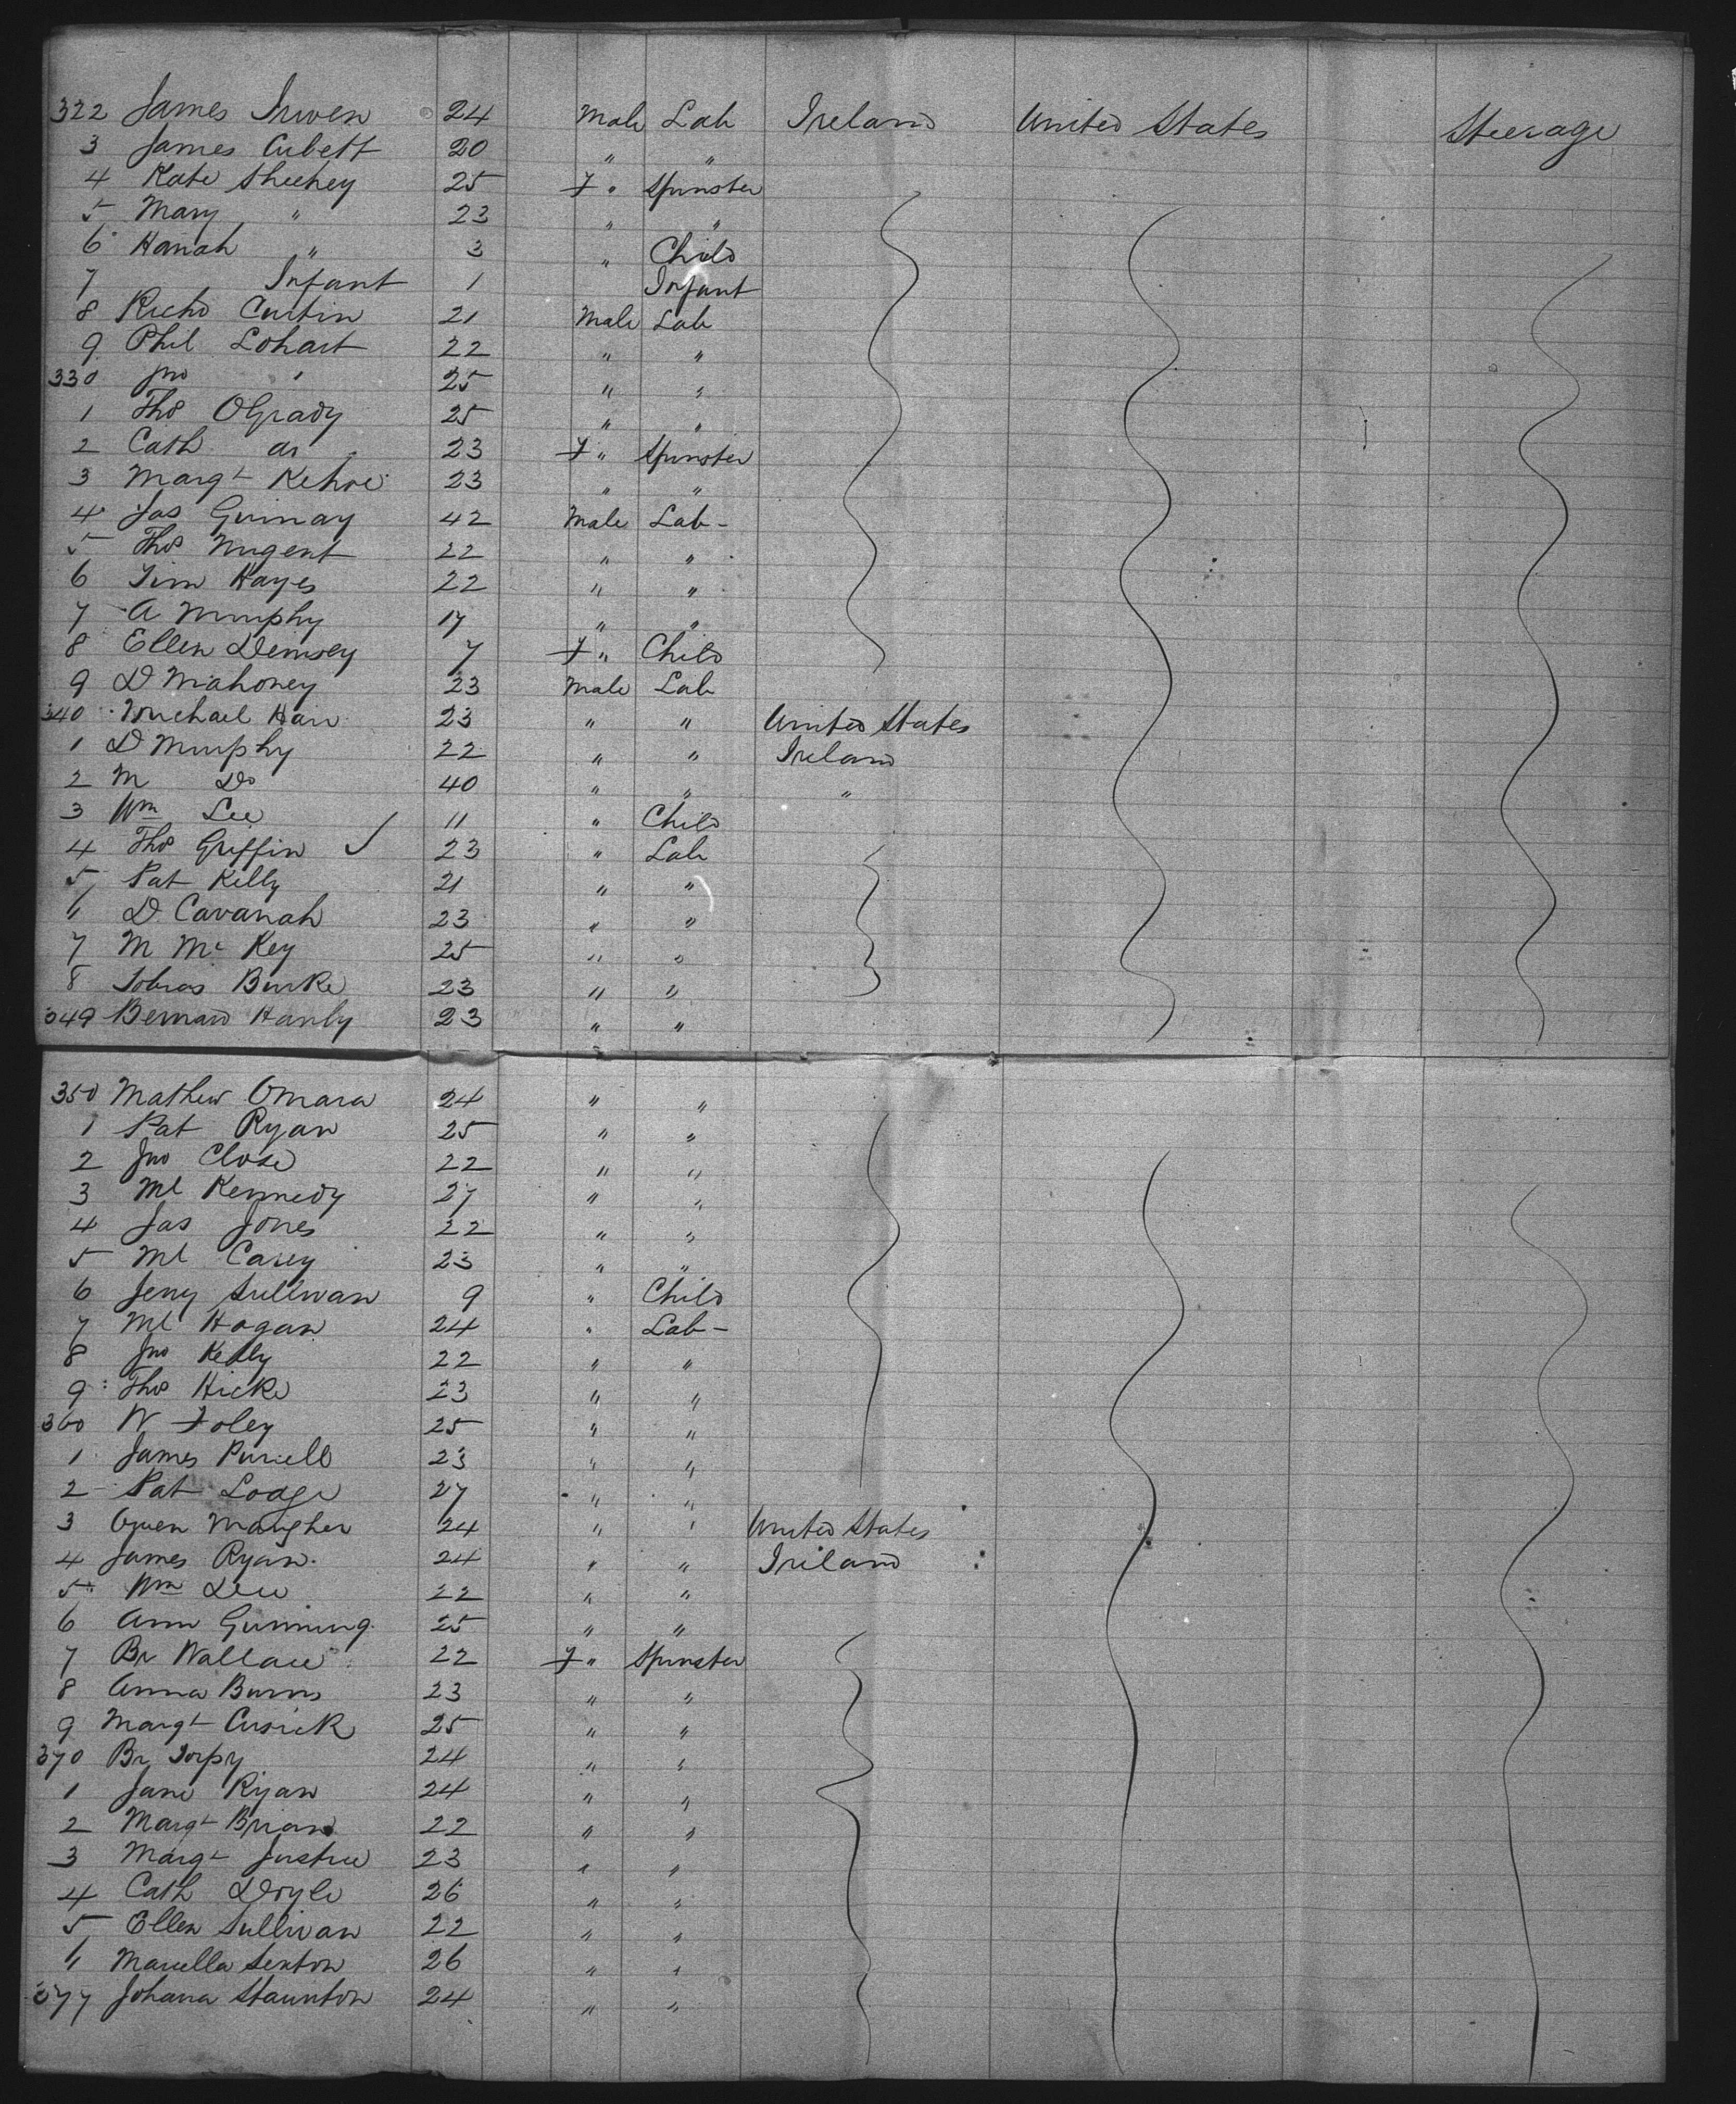 322 James Irwen 24 Male Lab Ireland United States Steerage
3 James Cubett 20 " "
4 Kate Sheehey 25 F " Spinster
5 Mary " 23 " "
6 Hanah " 3 " Child
7 Infant 1 Infant
8 Richd Curtin 21 Male Lab
9 Phil Lohart 22 " "
330 Jno " 25 " "
1 Thos OGrady 25 " "
2 Cath do 23 F " Spinster
3 Margt Kehoe 23 " "
4 Jas Guinay 42 Male Lab-
5 Thos Nugent 22 " "
6 Tim Hayes 22 " "
7 A Murphy 17 " "
8 Ellen Demsey 7 F " Child
9 D Mahoney 23 Male Lab
340 Michael Harr 23 " " United States
1 D Murphy 22 " " Ireland
2 M Do 40 " " "
3 Wm Lee 11 " Child
4 Thos Griffin ✓ 23 " Lab
5 Pat Kelly 21 " "
6 D Cavanah 23 " "
7 M Mc Key 25 " "
8 Tobias Burke 23 " "
349 Bernard Hanly 23 " "
350 Mathew Omara 24 " "
1 Pat Ryan 25 " "
2 Jno Close 22 " "
3 Ml Kennedy 27 " "
4 Jas Jones 22 " "
5 Ml Casey 23 " "
6 Jerry Sullivan 9 " Child
7 Ml Hogan 24 " Lab-
8 Jno Kelly 22 " "
9 Thos Hicke 23 " "
360 W Foley 25 " "
1 James Purcell 23 " "
2 Pat Lodge 27 " "
3 Owen Maugher 24 " " United States
4 James Ryan 24 " " Ireland
5 Wm 22 " "
6 Ann Gunning 25 " "
7 Br Wallace 22 F " Spinster
8 Anna Burns 23 " "
9 Margt Cusick 25 " "
370 Br Torpy 24 " "
1 Jane Ryan 24 " "
2 Margt Brian 22 " "
3 Margt Justice 23 " "
4 Cath Doyle 26 " "
5 Ellen Sullivan 22 " "
6 Marcella Sexton 26 " "
377 Johana Staunton 24 " "